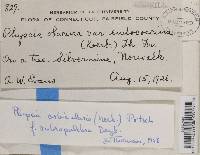 829.
HERBARIUM OF YALE UNIVERSITY
FLORA OF CONNECTICUT, FAIRFIELD COUNTY
Physcia obscura var. endococcina
(Koerb.) Th. Fr.
On a tree. Silvermine, Norwalk
A. W. Evans Aug. 15, 1926.
Physcia orbicularis (Neck.) Poetsch
f. rubropulchra Degel.